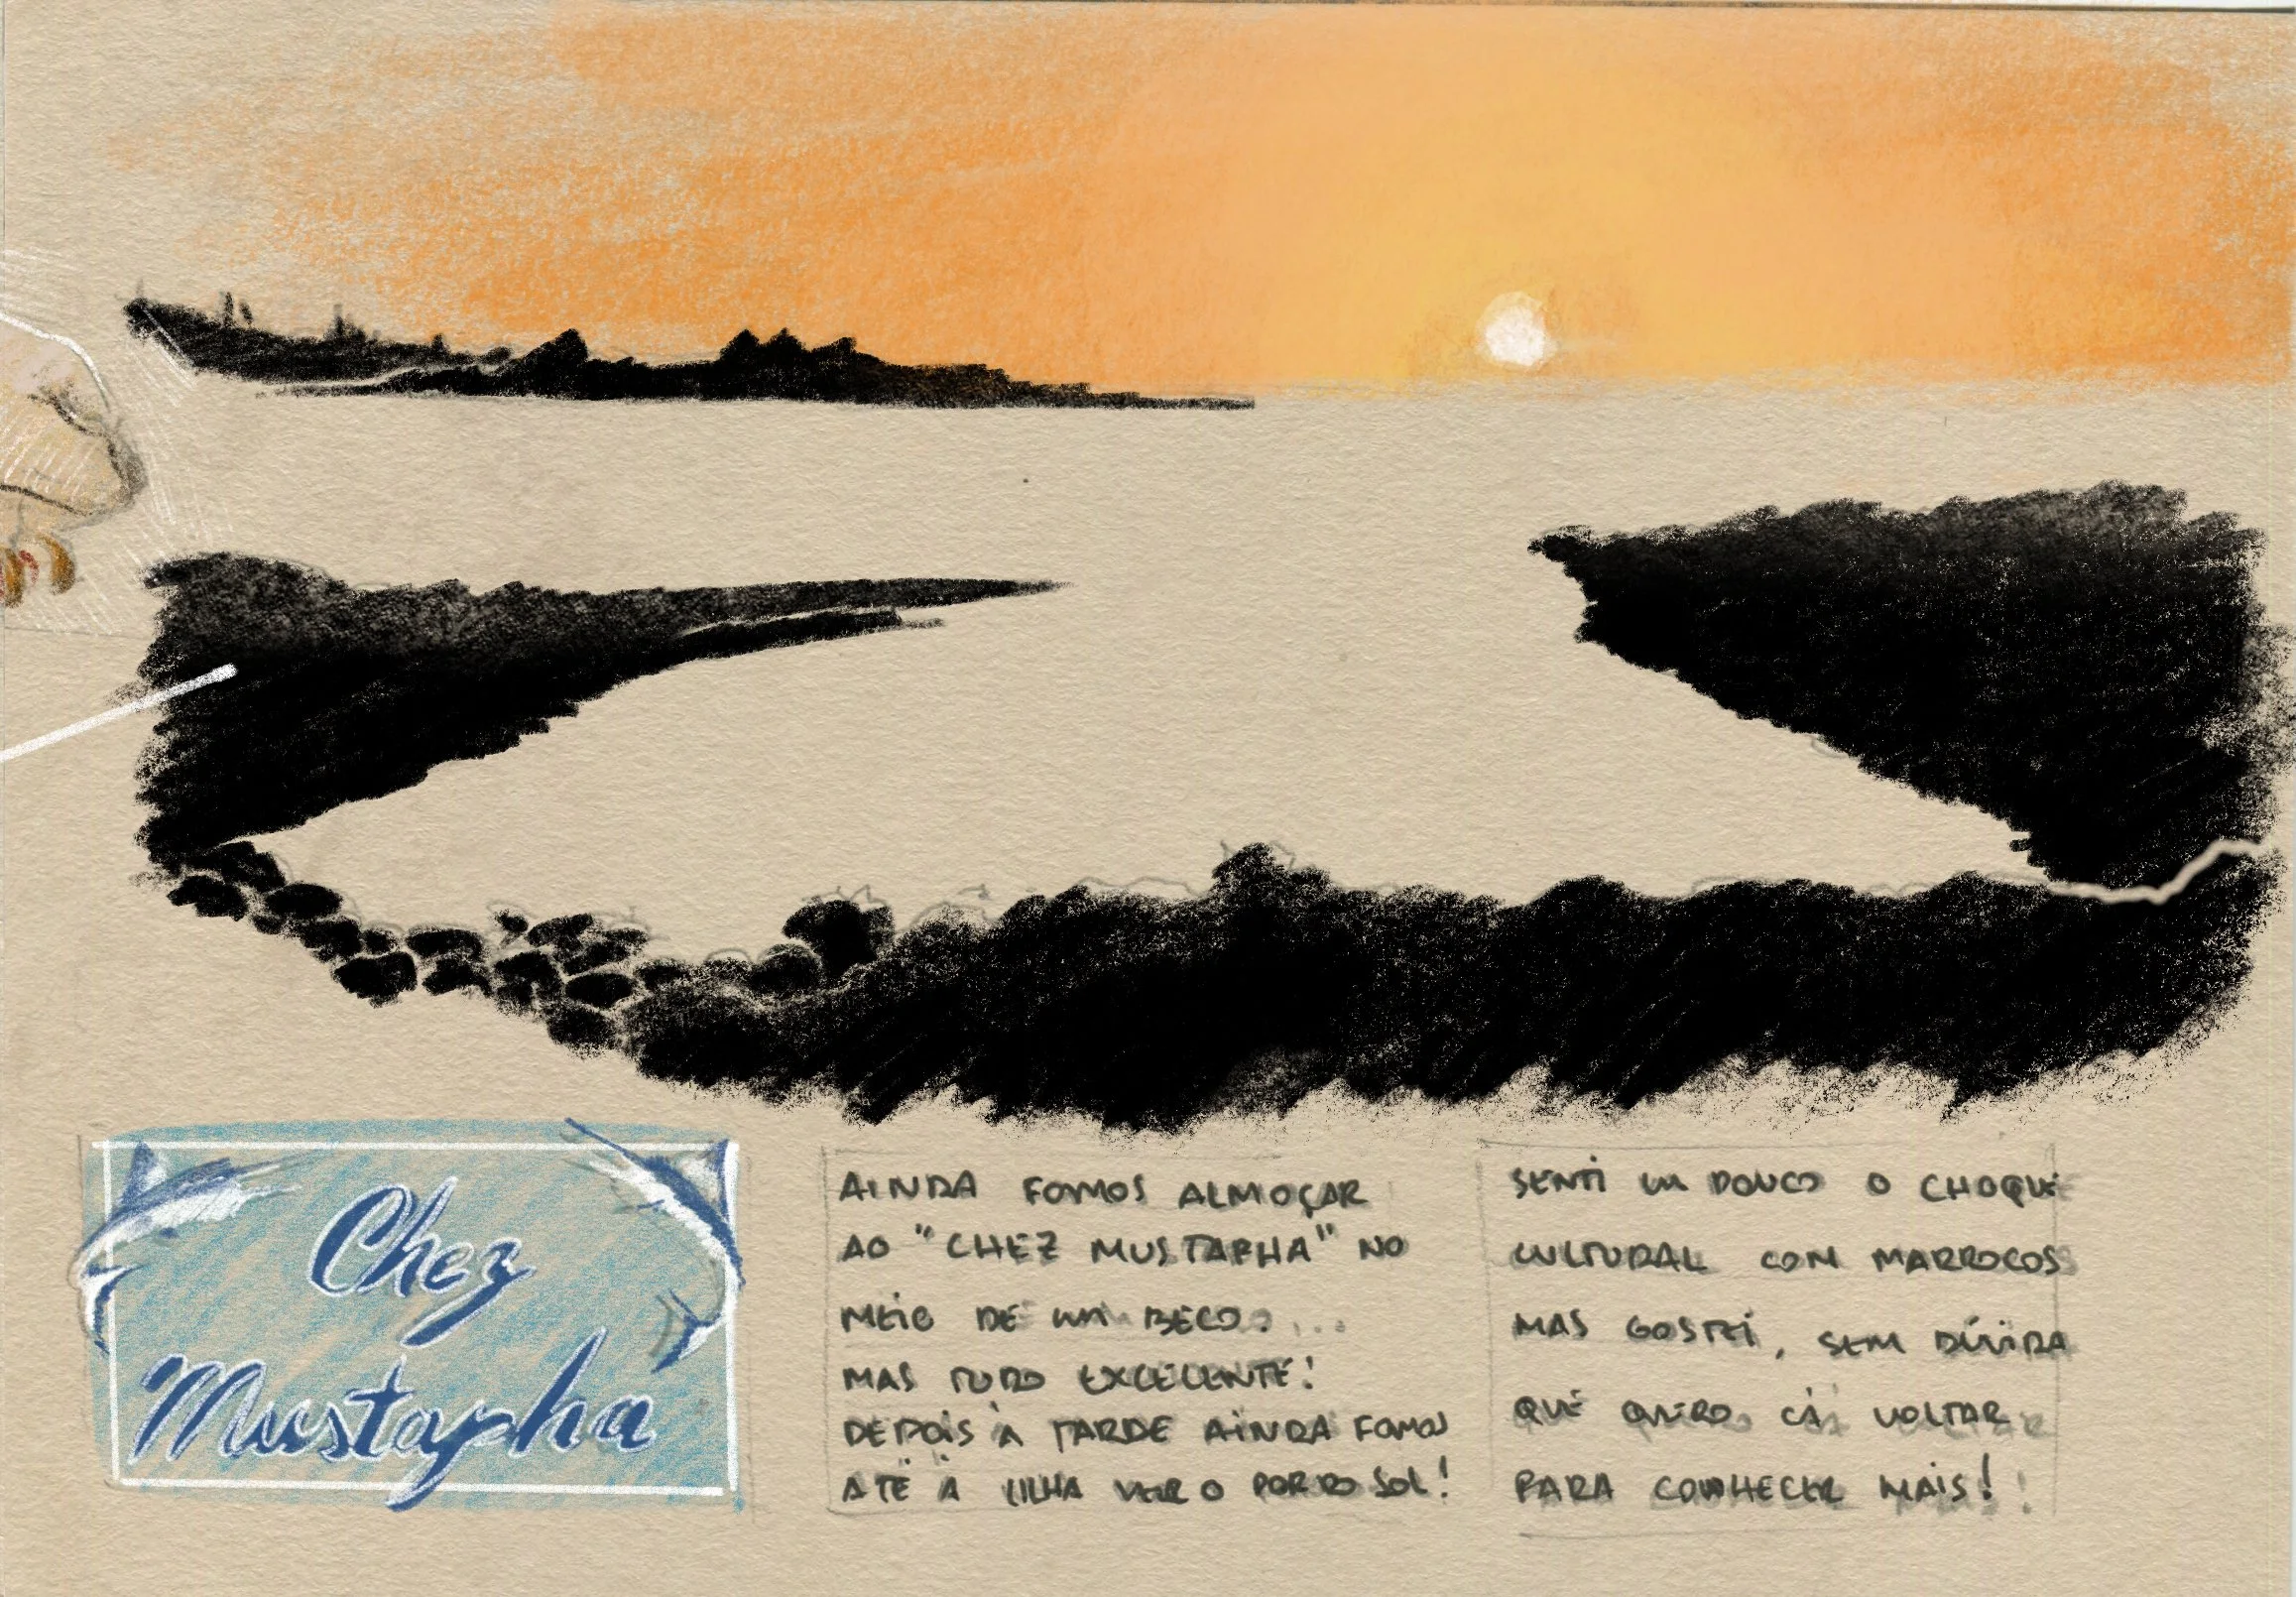 Chez
Mustapha
AINDA FOMOS ALMOÇAR
AO "CHEZ MUSTAPHA" NO
MEIO DE UM BECO...
MAS TUDO EXCELENTE!
DEPOIS À TARDE AINDA FOMOS
ATÉ À ILHA VER O POR DO SOL!
SENTI UM POUCO O CHOQUE
CULTURAL COM MARROCOS
MAS GOSTEI, SEM DÚVIDA
QUE QUERO CÁ VOLTAR
PARA CONHECER MAIS!